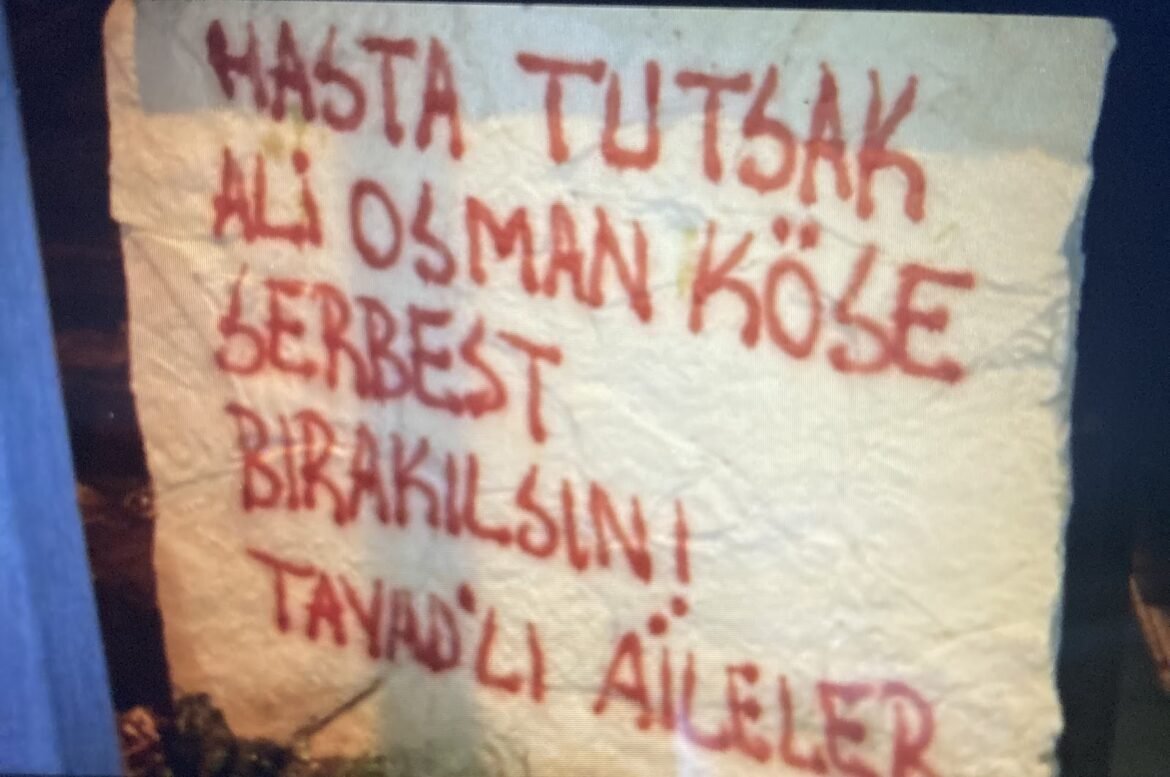 HASTA TUTSAK
ALİ OSMAN KÖSE
SERBEST
BIRAKILSIN!
TAYAD'LI AİLELER